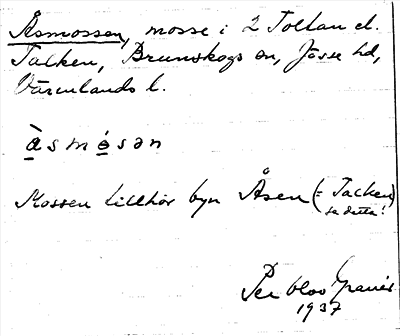 Åsmossen, mosse i 2 Toltan el.
Talken, Brunskogs sn, Jösse hd,
Värmlands l.
àsmósən
Mossen tillhör byn Åsen (= Talken)
se detta!
Per
1937